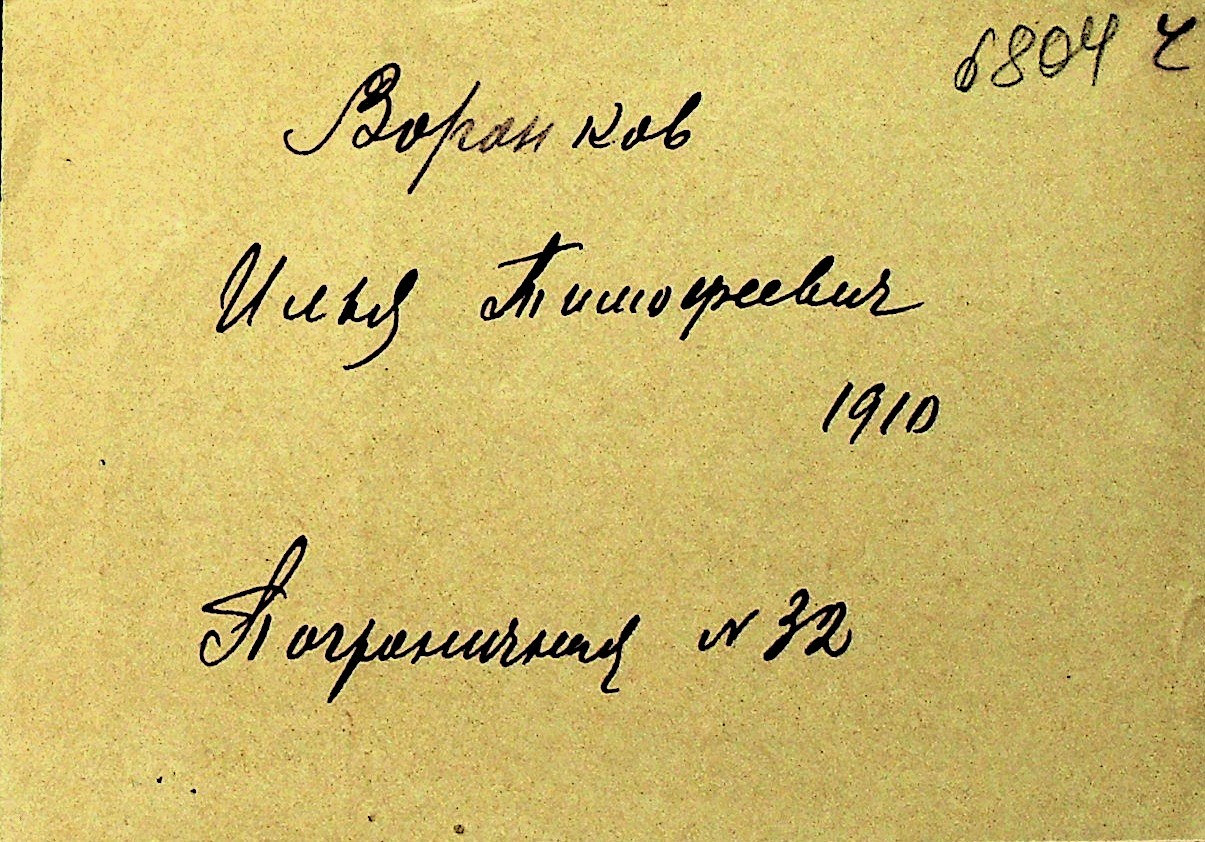 6804 ч
Воронков
Илья Тимофеевич
1910
Пограничная № 32